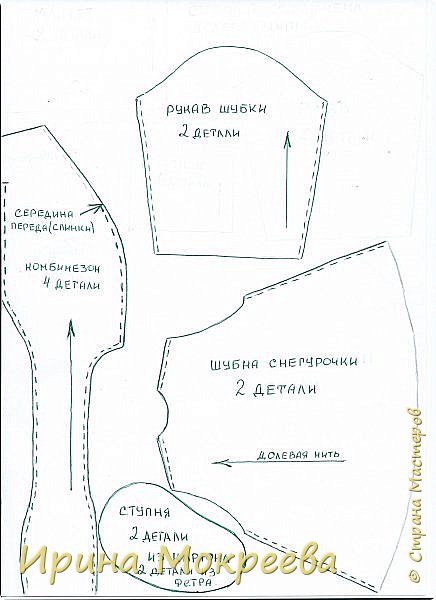 РУКАВ ШУБКИ
2 ДЕТАЛИ
СЕРЕДИНА
ПЕРЕДА (СПИНКИ)
КОМБИНЕЗОН
4 ДЕТАЛИ
ШУБКА СНЕГУРОЧКИ
2 ДЕТАЛИ
ДОЛЕВАЯ НИТЬ
СТУПНЯ
2 ДЕТАЛИ
ИЗ КАРТОНА
2 ДЕТАЛИ ИЗ
ФЕТРА
Ирина Мокреева
© Страна Мастеров